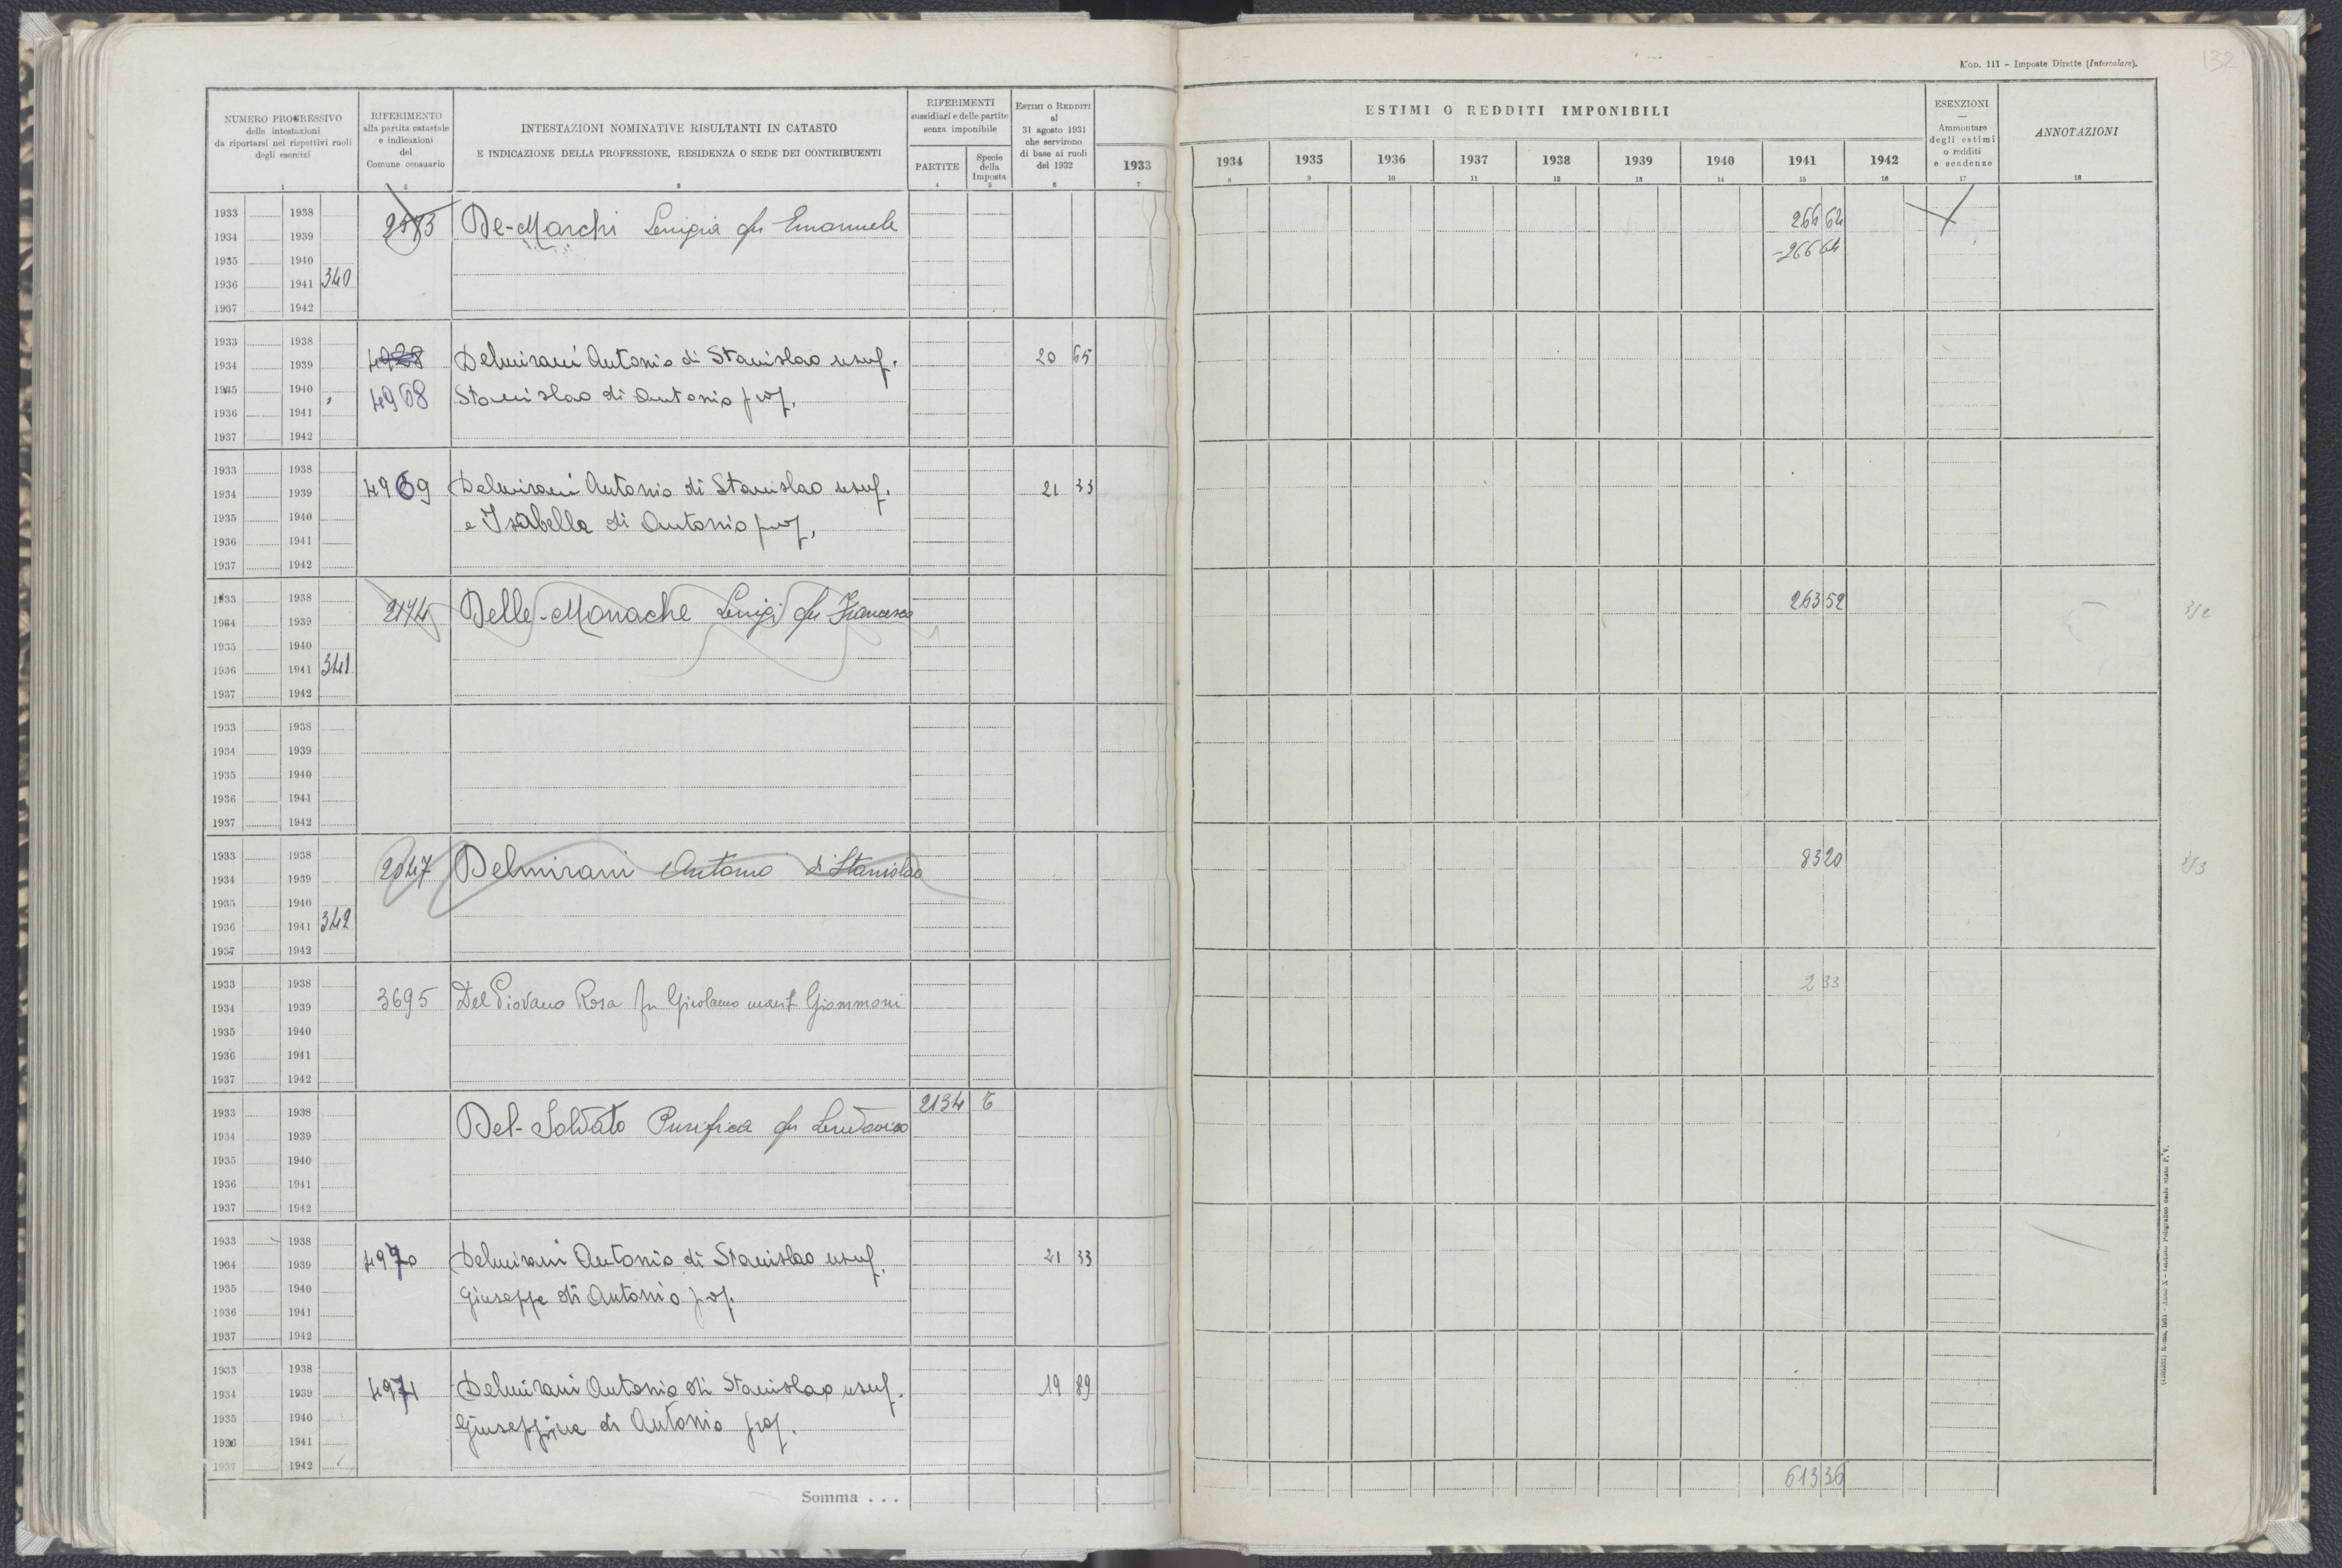 Mod. 111 – Imposte Dirette (Intercalare).
132
NUMERO PROGRESSIVO
delle intestazioni
da riportarsi nei rispettivi ruoli
degli esercizi
1
RIFERIMENTO
alla partita catastale
e indicazioni
del
Comune censuario
2
INTESTAZIONI NOMINATIVE RISULTANTI IN CATASTO
E INDICAZIONE DELLA PROFESSIONE, RESIDENZA O SEDE DEI CONTRIBUENTI
3
RIFERIMENTI
sussidiari e delle partite
senza imponibile
PARTITE
4
Specie
della
Imposta
5
Estimi o Redditi
al
31 agosto 1931
che servirono
di base ai ruoli
del 1932
6
1933
7
ESTIMI O REDDITI IMPONIBILI
1934 1935 1936 1937 1938 1939 1940 1941 1942
8 9 10 11 12 13 14 15 16
ESENZIONI
Ammontare
degli estimi
o redditi
e scadenze
17
ANNOTAZIONI
18
1933 1938
2573 De-Marchi Luigia fu Emanuele 264 64
1934 1939
-266 64
1935 1940
1936 1941 340
1937 1942
1933 1938
1934 1939 Delmirani Antonio di Stanislao usuf. 20 65
1935 1940 4968 Stanislao di Antonio prop.
1936 1941
1937 1942
1933 1938
1934 1939 4969 Delmirani Antonio di Stanislao usuf. 21 33
1935 1940 e Isabella di Antonio prop.
1936 1941
1937 1942
1933 1938
2174 Delle-Monache Luigi fu Francesco 263 52
1934 1939
1935 1940
1936 1941 341
1937 1942
1933 1938
1934 1939
1935 1940
1936 1941
1937 1942
1933 1938
2047 Delmirani Antonio di Stanislao 83 20
1934 1939
1935 1940
1936 1941 342
1937 1942
1933 1938
3695 Del Piovano Rosa fu Girolamo marit. Giammoni 2 33
1934 1939
1935 1940
1936 1941
1937 1942
1933 1938
Del-Soldato Purifica fu Ludovico 2134 T
1934 1939
1935 1940
1936 1941
1937 1942
1933 1938
1934 1939 4970 Delmirani Antonio di Stanislao usuf. 21 33
1935 1940 Giuseppe di Antonio prop.
1936 1941
1937 1942
1933 1938
1934 1939 4971 Delmirani Antonio di Stanislao usuf. 19 89
1935 1940 Giuseppina di Antonio prop.
1936 1941
1937 1942
Somma . . . 613 36